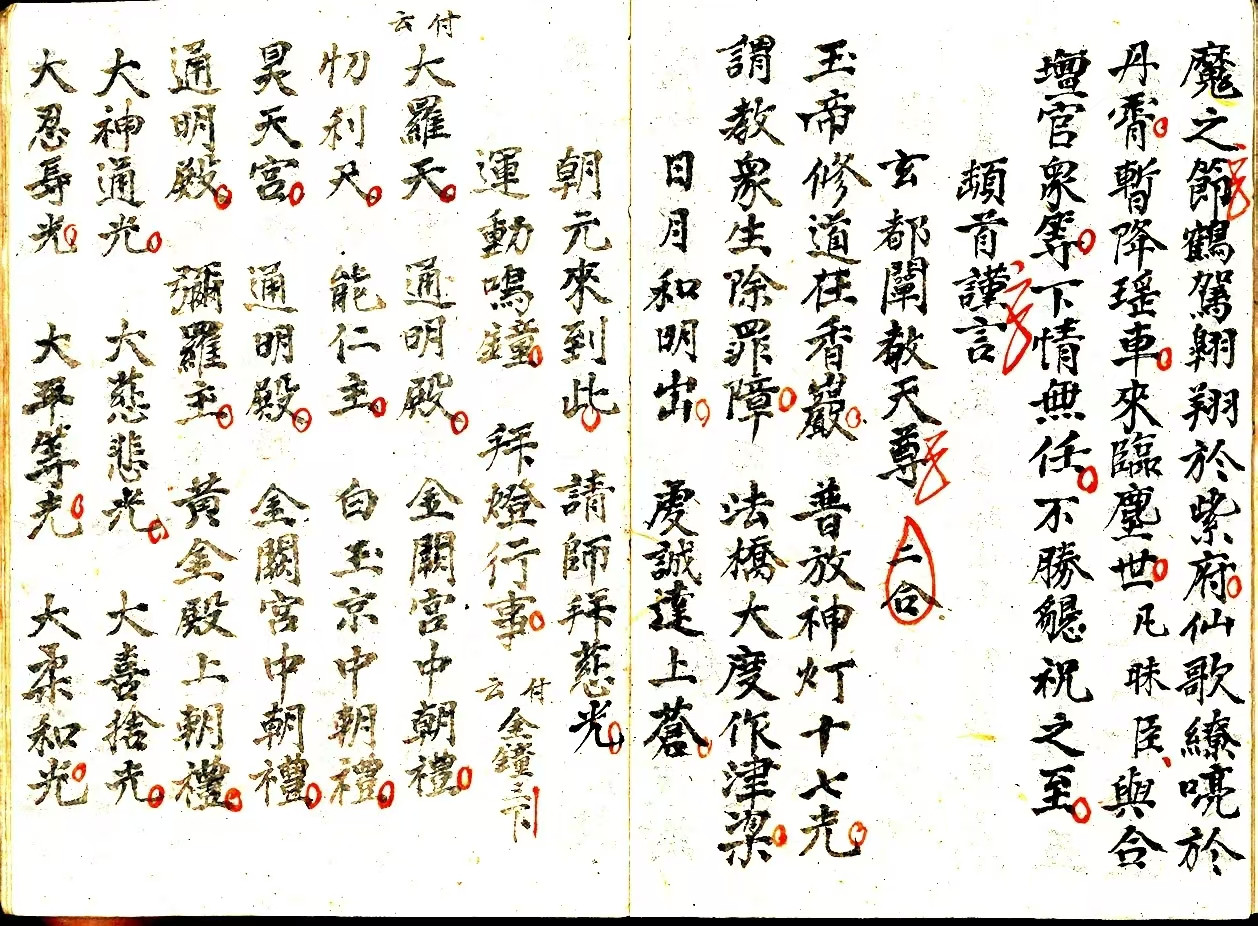 魔之節鶴駕翱翔於紫府仙歌繚喨於
丹霄暫降瑶車來臨塵世凡昧臣與合
壇官眾等下情無任不勝懇祝之至
頓首謹言
玄都闡教天尊 二合
玉帝修道在香巖 普放神灯十七光
謂教眾生除罪障 法橋大度作津梁
日月和明出 虔誠達上蒼
朝元來到此 請師拜慈光
運動鳴鐘 拜燈行事 付云 金鐘三下
付云
大羅天 通明殿 金闕宮中朝禮
忉利天 能仁主 白玉京中朝禮
昊天宮 通明殿 金闕宮中朝禮
通明殿 彌羅主 黃金殿上朝禮
大神通光 大慈悲光 大喜捨光
大忍辱光 大平等光 大柔和光